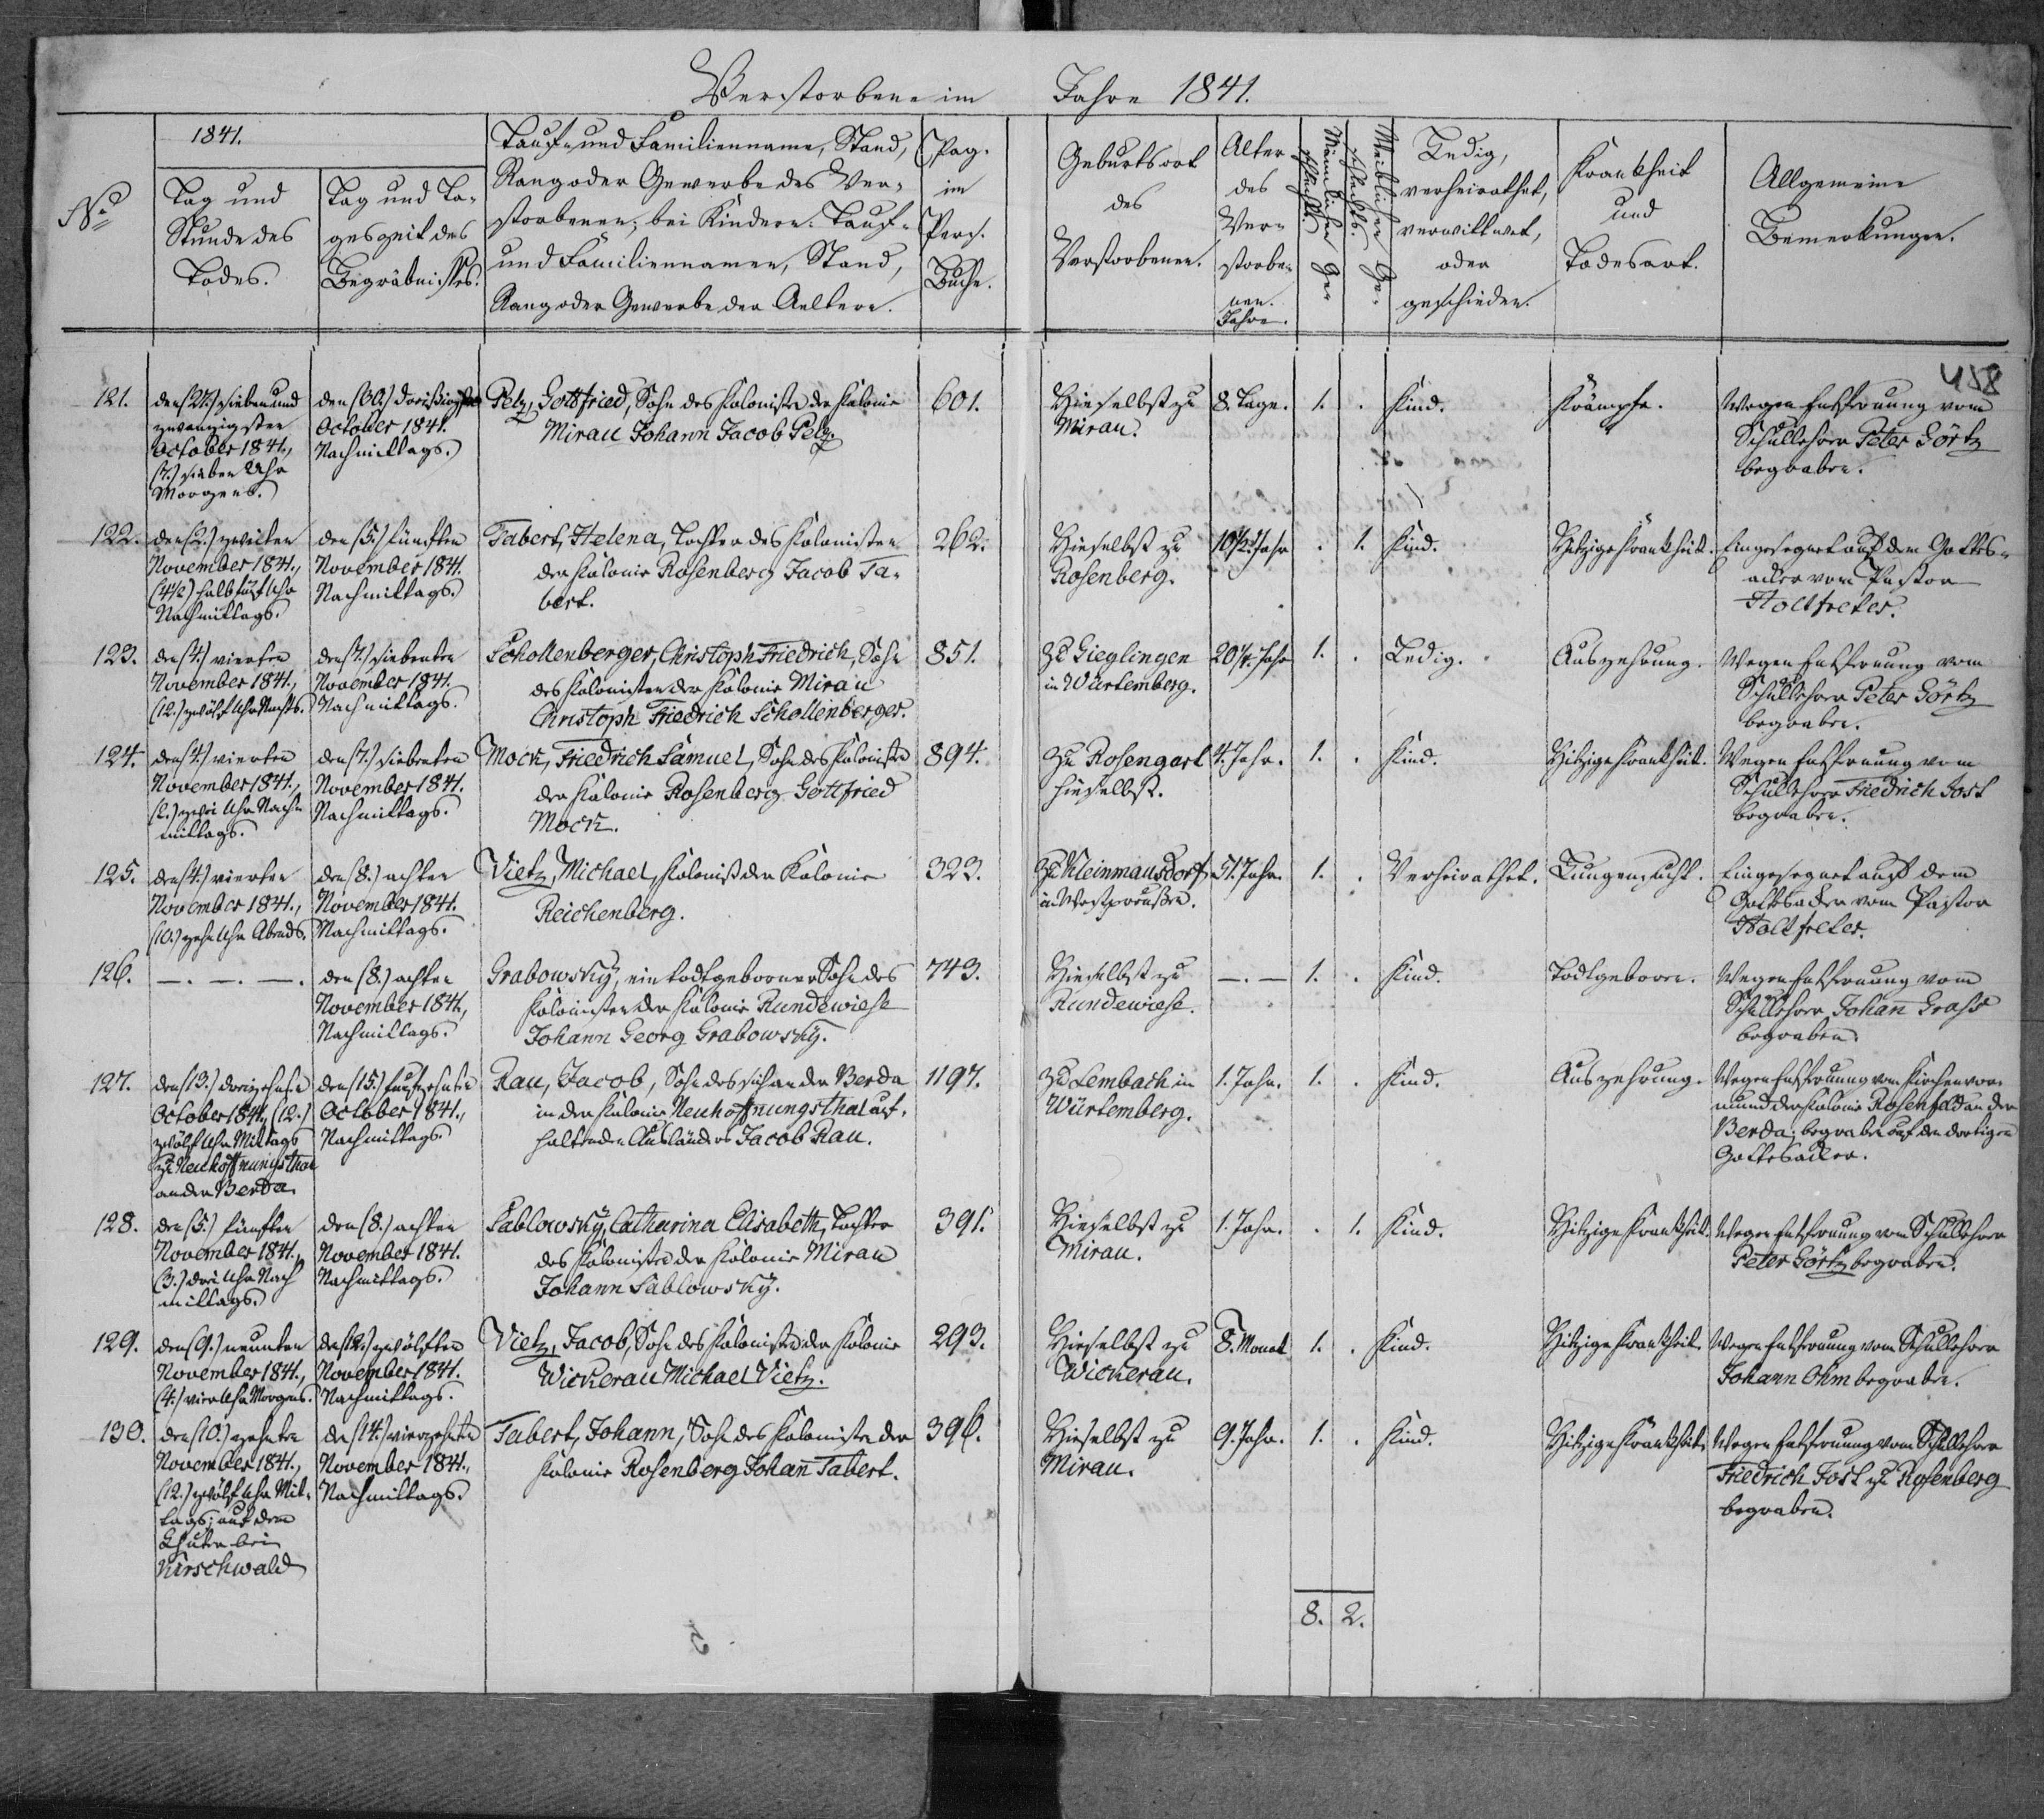 Verstorbene im Jahre 1841.
458
No
1841.
Tag und
Stunde des
Todes.
Tag und Ta-
geszeit des
Begräbnisses.
Tauf- und Familienname, Stand,
Rang oder Gewerbe des Ver-
storbenen; bei Kindern: Tauf-
und Familiennamen, Stand,
Rang oder Gewerbe der Aeltern.
Pag.
im
Pers.
Buche.
Geburtsort
des
Verstorbenen.
Alter
des
Ver-
storbe-
nen.
Jahre.
Männlichen Ge-
schlechts.
Weiblichen Ge-
schlechts.
Ledig,
verheirathet,
verwittwet,
oder
geschieden.
Krankheit
und
Todesart.
Allgemeine
Bemerkungen.
121.
den (27.) sieben und
zwanzigsten
October 1841.,
(7.) sieben Uhr
Morgens.
den (30.) dreißigsten
October 1841.
Nachmittags.
Pelz, Gottfried, Sohn des Kolonisten der Kolonie
Mirau Johann Jacob Pelz.
601.
Hieselbst zu
Mirau.
8. Tage.
1.
.
Kind.
Krämpfe.
Wegen Entfernung vom
Schullehrer Peter Görtz
begraben.
122.
den (2.) zweiten
November 1841.,
(4½) halb fünf Uhr
Nachmittags.
den (5.) fünften
November 1841.
Nachmittags.
Tabert, Helena, Tochter des Kolonisten
der Kolonie Rosenberg Jacob Ta-
bert.
262.
Hieselbst zu
Rosenberg.
10½ Jahr
.
1.
Kind.
Hitzige Krankheit.
Eingesegnet auf dem Gottes-
acker vom Pastor
Holtfreter.
123.
den (4.) vierten
November 1841.,
(12.) zwölf Uhr Nachts.
den (7.) siebenten
November 1841.
Nachmittags.
Schollenberger, Christoph Friedrich, Sohn
des Kolonisten der Kolonie Mirau
Christoph Friedrich Schollenberger.
851.
Zu Gieglingen
in Würtemberg.
20¼ Jahr
1.
.
Ledig.
Auszehrung.
Wegen Entfernung vom
Schullehrer Peter Görtz
begraben.
124.
den (4.) vierten
November 1841.,
(2.) zwei Uhr Nach-
mittags.
den (7.) siebenten
November 1841.
Nachmittags.
Mock, Friedrich Samuel, Sohn des Kolonisten
der Kolonie Rosenberg Gottfried
Mock.
894.
Zu Rosengart
hieselbst.
4. Jahr.
1.
.
Kind.
Hitzige Krankheit.
Wegen Entfernung vom
Schullehrer Friedrich Jost
begraben.
125.
den (4.) vierten
November 1841.,
(10.) zehn Uhr Abends.
den (8.) achten
November 1841.
Nachmittags.
Vietz, Michael, Kolonist der Kolonie
Reichenberg.
323.
Zu Kleinmausdorf
in Westpreußen.
51. Jahr.
1.
.
Verheirathet.
Lungensucht.
Eingesegnet auf dem
Gottesacker vom Pastor
Holtfreter.
126.
—.—.—.
den (8.) achten
November 1841,
Nachmittags.
Grabowsky, ein todtgeborner Sohn des
Kolonisten der Kolonie Rundewiese
Johann Georg Grabowsky.
743.
Hieselbst zu
Rundewiese.
—.—
1.
.
Kind.
Todtgeboren.
Wegen Entfernung vom
Schullehrer Johann Grass
begraben.
127.
den (13.) dreizehnten
October 1841., (12.)
zwölf Uhr Mittags
zu Neuhoffnungsthal
an der Berda.
den (15.) fünfzehnten
October 1841.,
Nachmittags.
Rau, Jacob, Sohn des sich an der Berda
in der Kolonie Neuhoffnungsthal auf-
haltenden Ausländers Jacob Rau.
1197.
Zu Lembach in
Würtemberg.
1. Jahr.
1.
.
Kind.
Auszehrung.
Wegen Entfernung vom Kirchenvor-
mund der Kolonie Rosenfeld an der
Berda; begraben auf dem dortigen
Gottesacker.
128.
den (5.) fünften
November 1841.,
(3.) drei Uhr Nach
mittags.
den (8.) achten
November 1841.
Nachmittags.
Sablowsky, Catharina Elisabeth, Tochter
des Kolonisten der Kolonie Mirau
Johann Sablowsky.
391.
Hieselbst zu
Mirau.
1. Jahr.
.
1.
Kind.
Hitzige Krankheit.
Wegen Entfernung vom Schullehrer
Peter Görtz begraben.
129.
den (9.) neunten
November 1841.,
(4.) vier Uhr Morgens.
den (12.) zwölften
November 1841.
Nachmittags.
Vietz, Jacob, Sohn des Kolonisten der Kolonie
Wickerau Michael Vietz.
293.
Hieselbst zu
Wickerau.
8. Monat
1.
.
Kind.
Hitzige Krankheit.
Wegen Entfernung vom Schullehrer
Johann Ohm begraben.
130.
den (10.) zehnten
November 1841.,
(12.) zwölf Uhr Mit-
tags; auf dem
bei
Kirschwald
den (14.) vierzehnten
November 1841.,
Nachmittags.
Tabert, Johann, Sohn des Kolonisten der
Kolonie Rosenberg Johann Tabert.
396.
Hieselbst zu
Mirau.
9. Jahr.
1.
.
Kind.
Hitzige Krankheit.
Wegen Entfernung vom Schullehrer
Friedrich Jost zu Rosenberg
begraben.
8. 2.